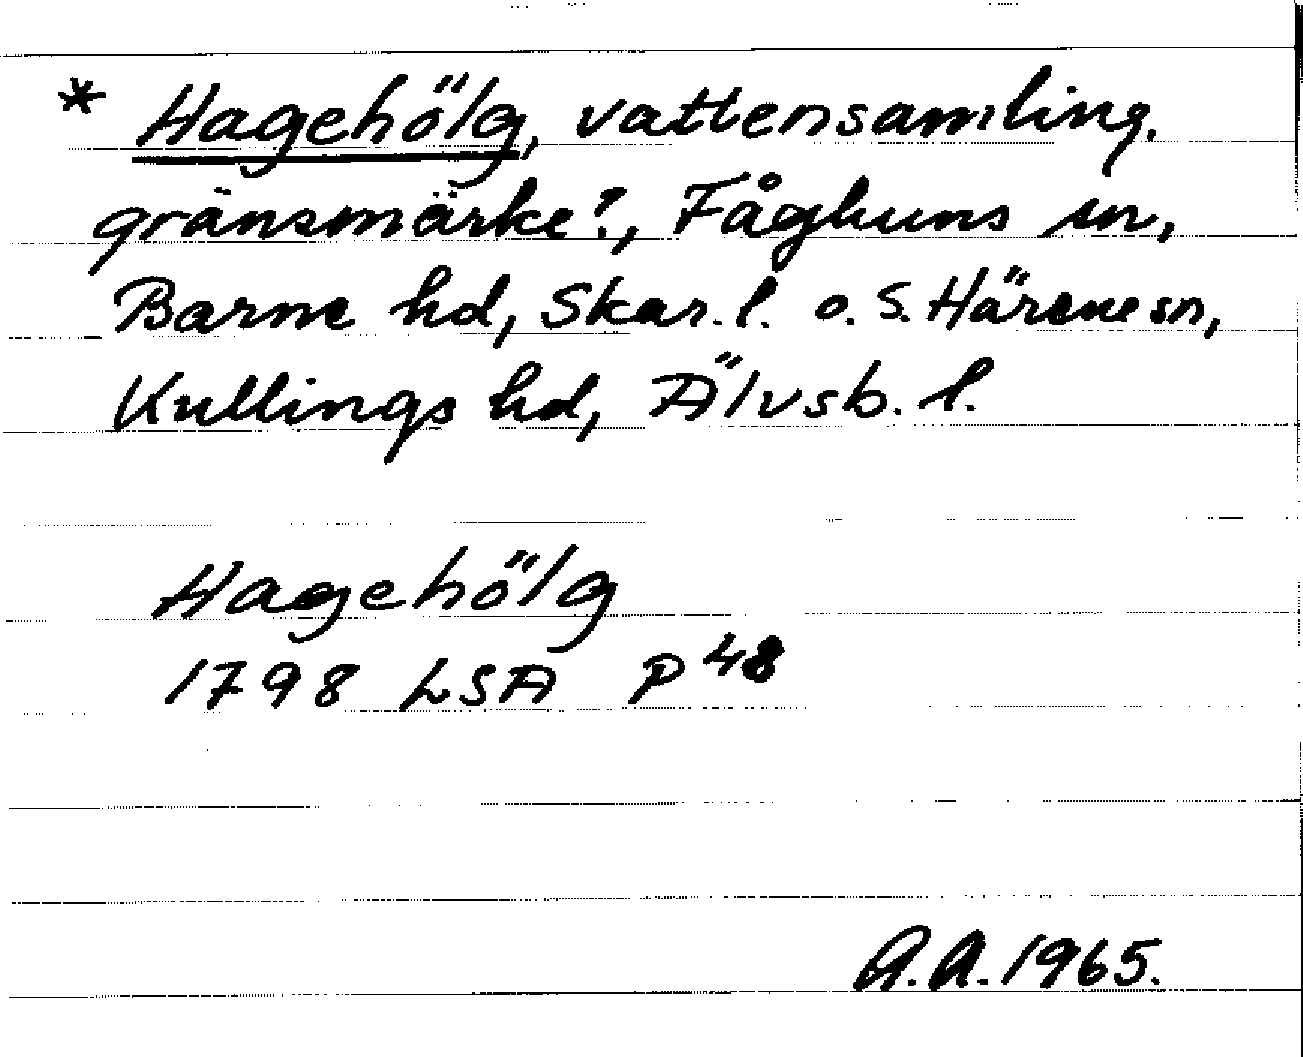 * Hagehölg, vattensamling.
gränsmärke?, Fåglums sn,
Barne hd, Skar. l. o. S. Härene sn,
Kullings hd, Älvsb. l.
Hagehölg
1798 LSA P 48
A.A. 1965.